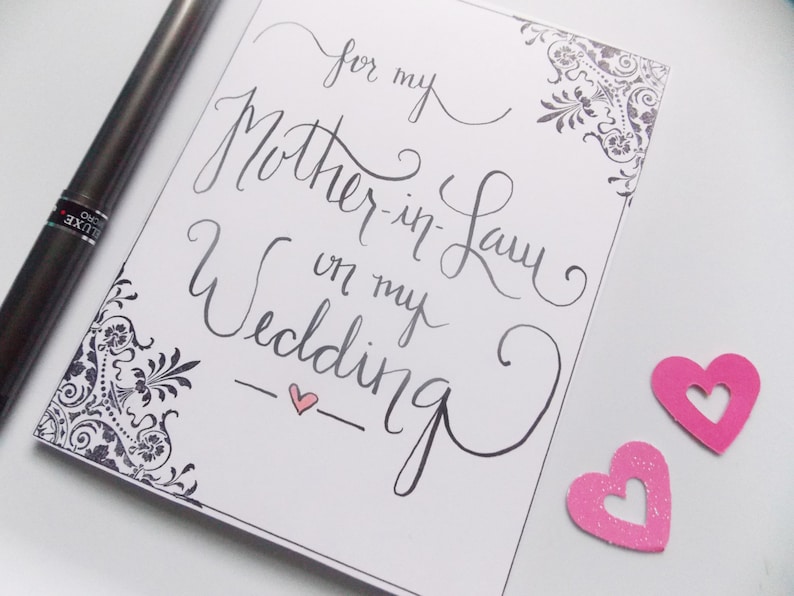 for my
Mother-in-Law
on my
Wedding